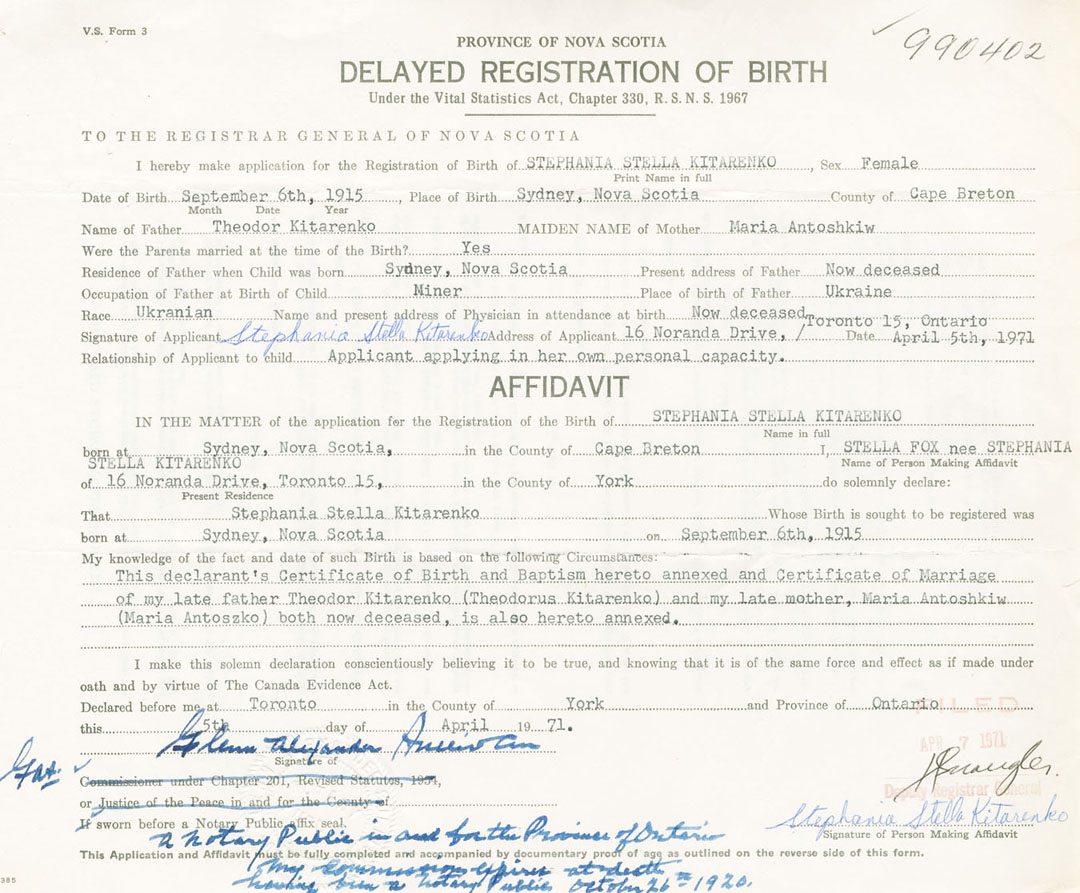 V.S. Form 3
990402
PROVINCE OF NOVA SCOTIA
DELAYED REGISTRATION OF BIRTH
Under the Vital Statistics Act, Chapter 330, R.S.N.S. 1967
TO THE REGISTRAR GENERAL OF NOVA SCOTIA
I hereby make application for the Registration of Birth of STEPHANIA STELLA KITARENKO, Sex Female
Print Name in full
Date of Birth September 6th, 1915, Place of Birth Sydney, Nova Scotia County of Cape Breton
Month Date Year
Name of Father Theodor Kitarenko MAIDEN NAME of Mother Maria Antoshkiw
Were the Parents married at the time of the Birth? Yes
Residence of Father when Child was born Sydney, Nova Scotia Present address of Father Now deceased
Occupation of Father at Birth of Child Miner Place of birth of Father Ukraine
Race Ukranian Name and present address of Physician in attendance at birth Now deceased
Toronto 15, Ontario
Signature of Applicant Stephania Stella Kitarenko Address of Applicant 16 Noranda Drive, / Date April 5th, 1971
Relationship of Applicant to child Applicant applying in her own personal capacity.
AFFIDAVIT
IN THE MATTER of the application fer the Registration of the Birth of STEPHANIA STELLA KITARENKO
Name in full
born at Sydney, Nova Scotia, in the County of Cape Breton I, STELLA FOX nee STEPHANIA
STELLA KITARENKO Name of Person Making Affidavit
of 16 Noranda Drive, Toronto 15, in the County of York do solemnly declare:
Present Residence
That Stephania Stella Kitarenko Whose Birth is sought to be registered was
born at Sydney, Nova Scotia on September 6th, 1915
My knowledge of the fact and date of such Birth is based on the following Circumstances:
This declarant's Certificate of Birth and Baptism hereto annexed and Certificate of Marriage
of my late father Theodor Kitarenko (Theodorus Kitarenko) and my late mother, Maria Antoshkiw
(Maria Antoszko) both now deceased, is also hereto annexed.
I make this solemn declaration conscientiously believing it to be true, and knowing that it is of the same force and effect as if made under
oath and by virtue of The Canada Evidence Act.
Declared before me at Toronto in the County of York and Province of Ontario
FILED
this 5th day of April 1971.
APR 7 1971
Glenn Alexander
Signature of
Commissioner under Chapter 201, Revised Statutes, 1954,
Deputy Registrar General
or Justice of the Peace in and for the County of
If sworn before a Notary Public affix seal.
Stephania Stella Kitarenko
a Notary Public in and for the Province of Ontario
Signature of Person Making Affidavit
This Application and Affidavit must be fully completed and accompanied by documentary proof of age as outlined on the reverse side of this form.
My Commission expires at death
having been a Notary Public October 26th 1920.
385